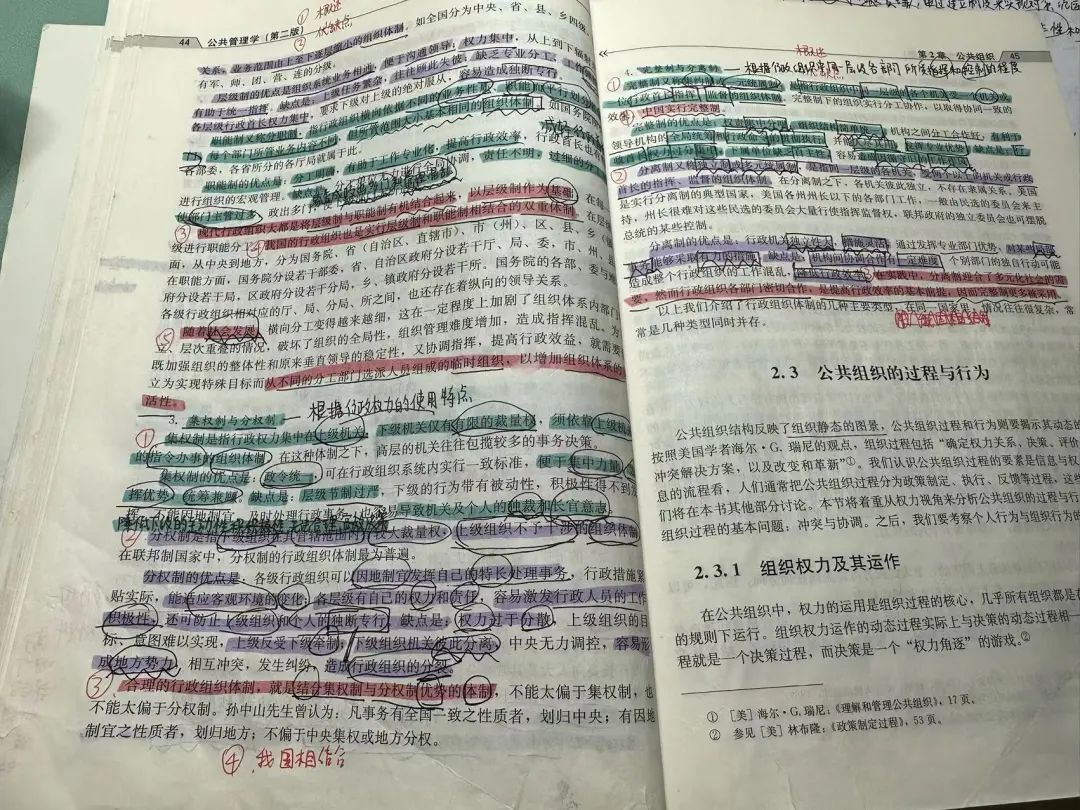 ① 概述
② 优缺点
44 公共管理学（第二版）
如全国分为中央、省、县、乡四级
关系，业务范围由上至下逐层缩小的组织体制，
有军、师、团、营、连的分级。
层级制的优点是组织系统业务相通，便于沟通领导，权力集中，从上到下
有助于统一指挥。缺点是：上级任务繁杂，往往顾此失彼，缺乏专业分工
各层级行政首长权力集中，要求下级对上级的绝对服从，容易造成独断专行。
职能制又称分职制，指行政组织横向依据不同的业务性质
每个部门所管业务内容不同，但所管范围大小基本相同的组织体制。如国务院
各部委，各省所分的各厅局就属于此。
职能制的优点是：分工明确，有助于工作专业化，提高行政效率，行政首长也
进行组织的宏观管理。缺点是：
协调，责任不明，过细的分
使部门主管过多，政出多门
③ 现代行政组织大都是将层级制与职能制有机结合起来，以层级制作为基础
级进行职能分工。④我国的行政组织也是实行层级制和职能制相结合的双重体制
面，从中央到地方，分为国务院、省（自治区、直辖市）、市（州）、区、县、乡（镇
在职能方面，国务院分设若干部委，省、自治区政府分设若干厅、局、委，市、州、
府分设若干局，区政府分设若干分局，乡、镇政府分设若干所。国务院的各部、委与地
各级行政组织相对应的厅、局、分局、所之间，也还存在着纵向的领导关系。
⑤ 随着社会发展，横向分工变得越来越细，这在一定程度上加剧了组织体系内部门
立、层次重叠的情况，破坏了组织的全局性，组织管理难度增加，造成指挥混乱。为
既加强组织的整体性和原来垂直领导的稳定性，又协调指挥，提高行政效能，就需要
立为实现特殊目标而从不同的分工部门选派人员组成的临时组织，以增加组织体系的
活性。
3. 集权制与分权制 —— 根据行政权力的使用特点
① 集权制是指行政权力集中在上级机关，下级机关仅有有限的裁量权，须依靠上级机
的指令办事的组织体制。在这种体制之下，高层的机关往往包揽较多的事务决策。
集权制的优点是：政令统一，可在行政组织系统内实行一致标准，便于集中力量，
挥优势，统筹兼顾。缺点是：层级节制过严，下级的行为带有被动性，积极性得不到发
挥，不能因地制宜、及时处理行政事务，也容易导致机关及个人的独裁和长官意志
② 分权制是指下级组织在其管辖范围内有较大裁量权，上级组织不予干涉的组织体制
在联邦制国家中，分权制的行政组织体制最为普遍。
分权制的优点是：各级行政组织可以因地制宜发挥自己的特长处理事务，行政措施紧
贴实际，能适应客观环境的变化，各层级有自己的权力和责任，容易激发行政人员的工作
积极性，还可防止上级组织和个人的独断专行。缺点是：权力过于分散，上级组织的目
标、意图难以实现，上级反受下级牵制，下级组织机关彼此分离，中央无力调控，容易形
成地方势力，相互冲突，发生纠纷，造成行政组织的分裂。
③ 合理的行政组织体制，就是结合集权制与分权制优势的体制，不能太偏于集权制，也
不能太偏于分权制。孙中山先生曾认为：凡事务有全国一致之性质者，划归中央；有因地
制宜之性质者，划归地方；不偏于中央集权或地方分权。
④ 我国相结合
概述
第2章 公共组织 45
4. 完整制与分离制
① 完整制又称集约制或一元统属制，是指行政组织中同一层级的各个机关
位行政首长指挥、监督的组织体制。完整制下的组织实行分工协作，以取得协同一致的
效果。中国实行完整制。
完整制的优点是：权责集中分明，组织结构能兼统一，机构之间分工合作好，有利于
② 分离制又称独立制或多元统属制，是指同一层级的各机关
首长的指挥、监督的组织体制。在分离制之下，各机关彼此独立，不存在隶属关系。美国
是实行分离制的典型国家，美国各州州长以下的各部门工作，一般由民选的委员会来主
持，州长很难对这些民选的委员会大量行使指挥监督权，联邦政府的独立委员会也可摆脱
总统的某些控制。
分离制的优点是：行政机关独立性大，措施灵活，通过发挥专业部门优势，
缺点是：机构间协调合作有一定难度，个别部门的独自行动可能
造成整个行政组织的工作混乱，降低行政效率。在实践中，分离制迎合了多元化社会的需
要，然而行政组织各部门密切合作，是提高行政效率的基本前提，因而完整制更多被采用。
以上我们介绍了行政组织体制的几种主要类型，在同一国家里，情况往往很复杂，常
常是几种类型同时并存。
2.3 公共组织的过程与行为
公共组织结构反映了组织静态的图景，公共组织过程和行为则要揭示其动态的
按照美国学者海尔·G. 瑞尼的观点，组织过程包括“确定权力关系、决策、评价
冲突解决方案，以及改变和革新”①。我们认识公共组织过程的要素是信息与权
息的流程看，人们通常把公共组织过程分为政策制定、执行、反馈等过程，这些
们将在本书其他部分讨论。本节将着重从权力视角来分析公共组织的过程与行
组织过程的基本问题：冲突与协调。之后，我们要考察个人行为与组织行为的
2.3.1 组织权力及其运作
在公共组织中，权力的运用是组织过程的核心，几乎所有组织都是在
的规则下运行。组织权力运作的动态过程实际上与决策的动态过程相一
程就是一个决策过程，而决策是一个“权力角逐”的游戏。②
① ［美］海尔·G. 瑞尼：《理解和管理公共组织》，17页。
② 参见［美］林布隆：《政策制定过程》，53页。